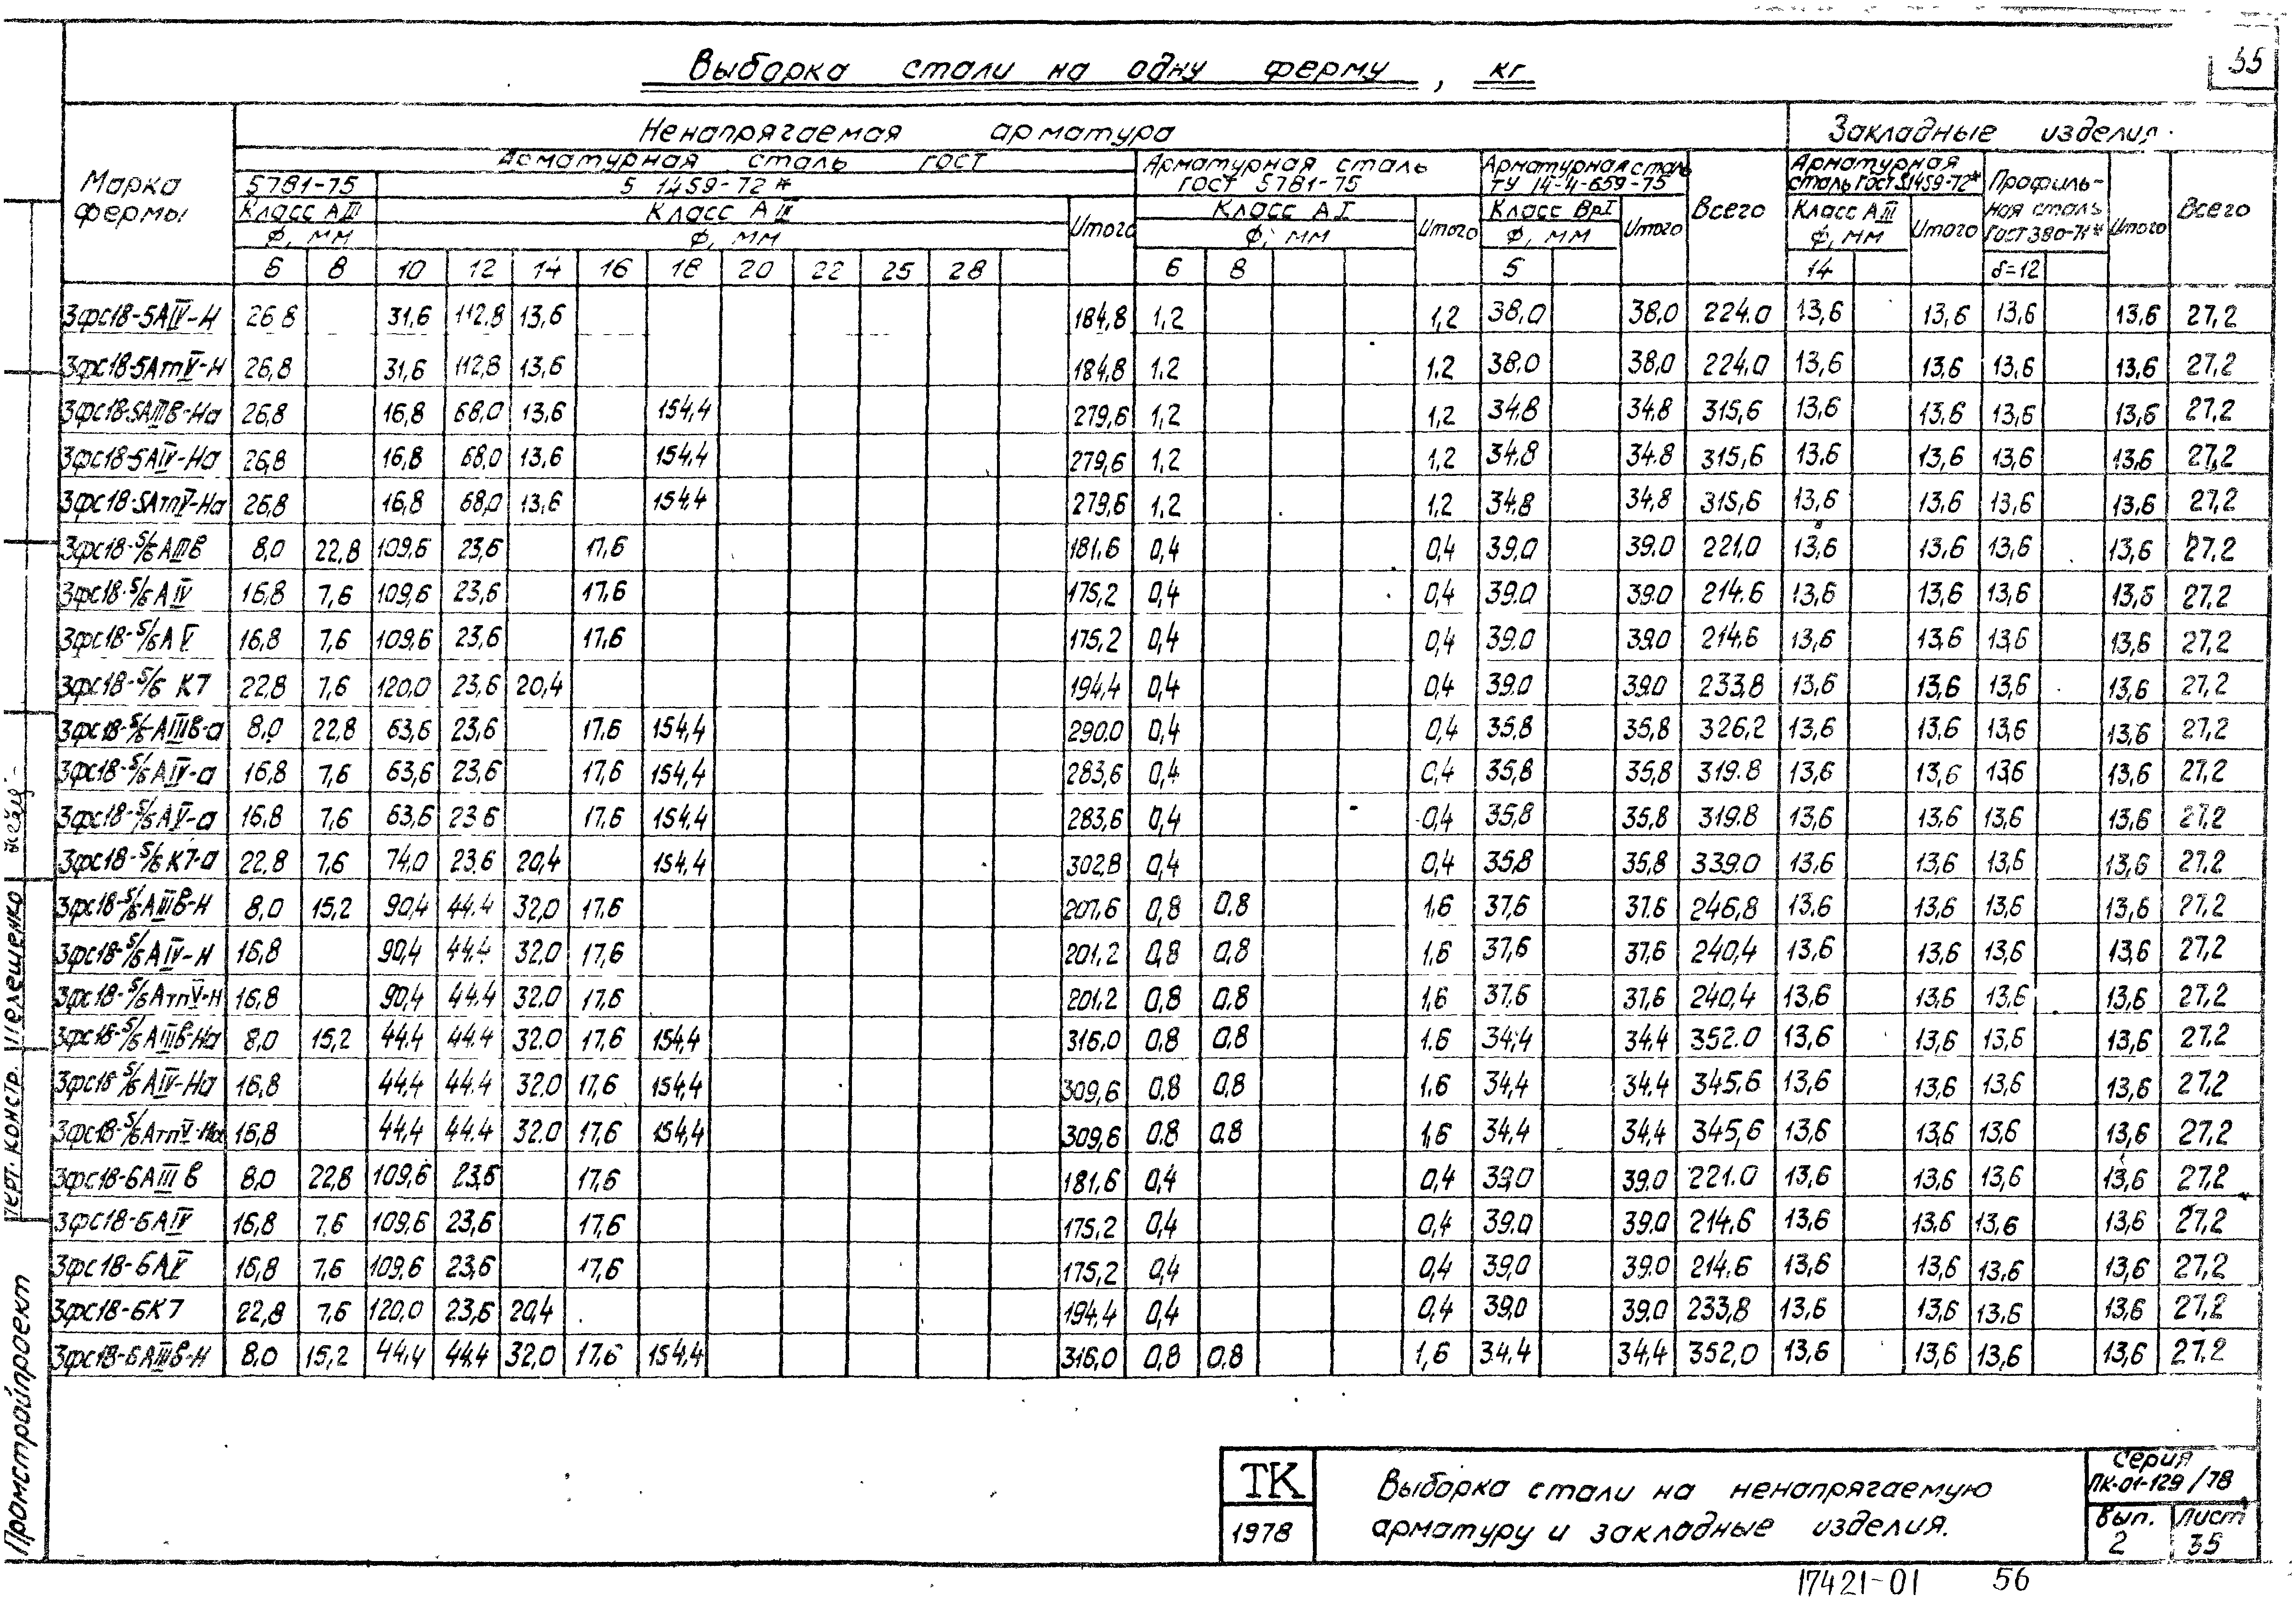 35
Выборка стали на одну ферму, кг
Марка фермы
Ненапрягаемая арматура
Закладные изделия
Арматурная сталь ГОСТ
Арматурная сталь ГОСТ 5781-75
Арматурная сталь ТУ 14-4-659-75
Всего
Арматурная сталь ГОСТ 51459-72*
Профильная сталь ГОСТ 380-71*
Итого
Всего
5781-75
51459-72*
Класс АIII
Класс АIII
Итого
Класс АI
Итого
Класс ВрI
Итого
Класс АIII
Итого
ф, мм
ф, мм
ф, мм
ф, мм
ф, мм
6 8 10 12 14 16 18 20 22 25 28 6 8 5 14 δ=12
3фс18-5АIV-Н 26.8 31,6 112.8 13,6 184,8 1,2 1,2 38,0 38,0 224.0 13,6 13,6 13,6 13,6 27,2
3фс18-5АтV-Н 26,8 31,6 112,8 13,6 184,8 1.2 1.2 38.0 38,0 224,0 13,6 13,6 13,6 13,6 27,2
3фс18-5АIIIв-На 26,8 16,8 68,0 13,6 154,4 279,6 1,2 1,2 34,8 34,8 315,6 13,6 13,6 13,6 13,6 27,2
3фс18-5АIV-На 26,8 16,8 68,0 13,6 154,4 279,6 1,2 1,2 34,8 34.8 315,6 13,6 13,6 13,6 13,6 27,2
3фс18-5АтV-На 26,8 16,8 68,0 13,6 154,4 279,6 1,2 1,2 34,8 34,8 315,6 13,6 13,6 13,6 13,6 27,2
3фс18-5/6АIIIв 8,0 22,8 109,6 23,6 17,6 181,6 0,4 0,4 39,0 39.0 221,0 13,6 13,6 13,6 13,6 27,2
3фс18-5/6АIV 16,8 7,6 109,6 23,6 17,6 175,2 0,4 0,4 39.0 39.0 214.6 13,6 13,6 13,6 13,6 27,2
3фс18-5/6АV 16,8 7,6 109,6 23,6 17,6 175,2 0,4 0,4 39.0 39.0 214,6 13,6 13,6 13,6 13,6 27,2
3фс18-5/6 К7 22,8 7,6 120,0 23,6 20,4 194,4 0,4 0,4 39.0 39.0 233,8 13,6 13,6 13,6 13,6 27,2
3фс18-5/6АIIIв-а 8,0 22,8 63,6 23,6 17,6 154,4 290.0 0,4 0,4 35,8 35,8 326,2 13,6 13,6 13,6 13,6 27,2
3фс18-5/6АIV-а 16,8 7,6 63,6 23,6 17,6 154,4 283,6 0,4 0,4 35,8 35,8 319.8 13,6 13,6 13,6 13,6 27,2
3фс18-5/6АV-а 16,8 7,6 63,6 23 6 17,6 154,4 283,6 0,4 0,4 35,8 35,8 319.8 13,6 13,6 13,6 13,6 27,2
3фс18-5/6К7-а 22,8 7,6 74,0 23,6 20,4 154,4 302,8 0,4 0,4 35,8 35,8 339.0 13,6 13,6 13,6 13,6 27,2
3фс18-5/6АIIIв-Н 8,0 15,2 90,4 44.4 32,0 17,6 207,6 0,8 0.8 1,6 37,6 37.6 246,8 13,6 13,6 13,6 13,6 27,2
3фс18-5/6АIV-Н 16,8 90,4 44.4 32.0 17,6 201,2 0,8 0,8 1.6 37,6 37,6 240,4 13,6 13,6 13,6 13,6 27,2
3фс18-5/6АтV-Н 16,8 90,4 44.4 32.0 17,6 201.2 0,8 0.8 1,6 37.6 37,6 240,4 13,6 13,6 13,6 13,6 27,2
3фс18-5/6АIIIв-На 8,0 15,2 44.4 44.4 32.0 17,6 154,4 316,0 0.8 0.8 1.6 34,4 34.4 352.0 13,6 13,6 13,6 13,6 27,2
3фс18 5/6АIV-На 16,8 44,4 44.4 32.0 17,6 154,4 309,6 0,8 0,8 1.6 34,4 34.4 345,6 13,6 13,6 13,6 13,6 27,2
3фс18-5/6АтV-На 16,8 44,4 44.4 32.0 17,6 154,4 309,6 0.8 0,8 1,6 34,4 34,4 345,6 13,6 13,6 13,6 13,6 27,2
3фс18-6АIII в 8,0 22,8 109,6 23,6 17,6 181,6 0,4 0,4 39,0 39.0 221.0 13,6 13,6 13,6 13,6 27,2
3фс18-6АIV 16,8 7,6 109,6 23,6 17,6 175,2 0,4 0,4 39.0 39.0 214,6 13,6 13,6 13,6 13,6 27,2
3фс18-6АV 16,8 7,6 109,6 23,6 17,6 175,2 0,4 0,4 39,0 39.0 214.6 13,6 13,6 13,6 13,6 27,2
3фс18-6К7 22,8 7,6 120,0 23,6 20,4 194,4 0,4 0,4 39,0 39.0 233,8 13,6 13,6 13,6 13,6 27,2
3фс18-6АIIIв-Н 8,0 15,2 44,4 44.4 32,0 17,6 154,4 316,0 0,8 0,8 1,6 34.4 34,4 352,0 13,6 13,6 13,6 13,6 27.2
Промстройпроект
Шелешенко
ТК
1978
Выборка стали на ненапрягаемую
арматуру и закладные изделия.
Серия
ПК-01-129/78
Вып.
2
Лист
35
17421-01 56